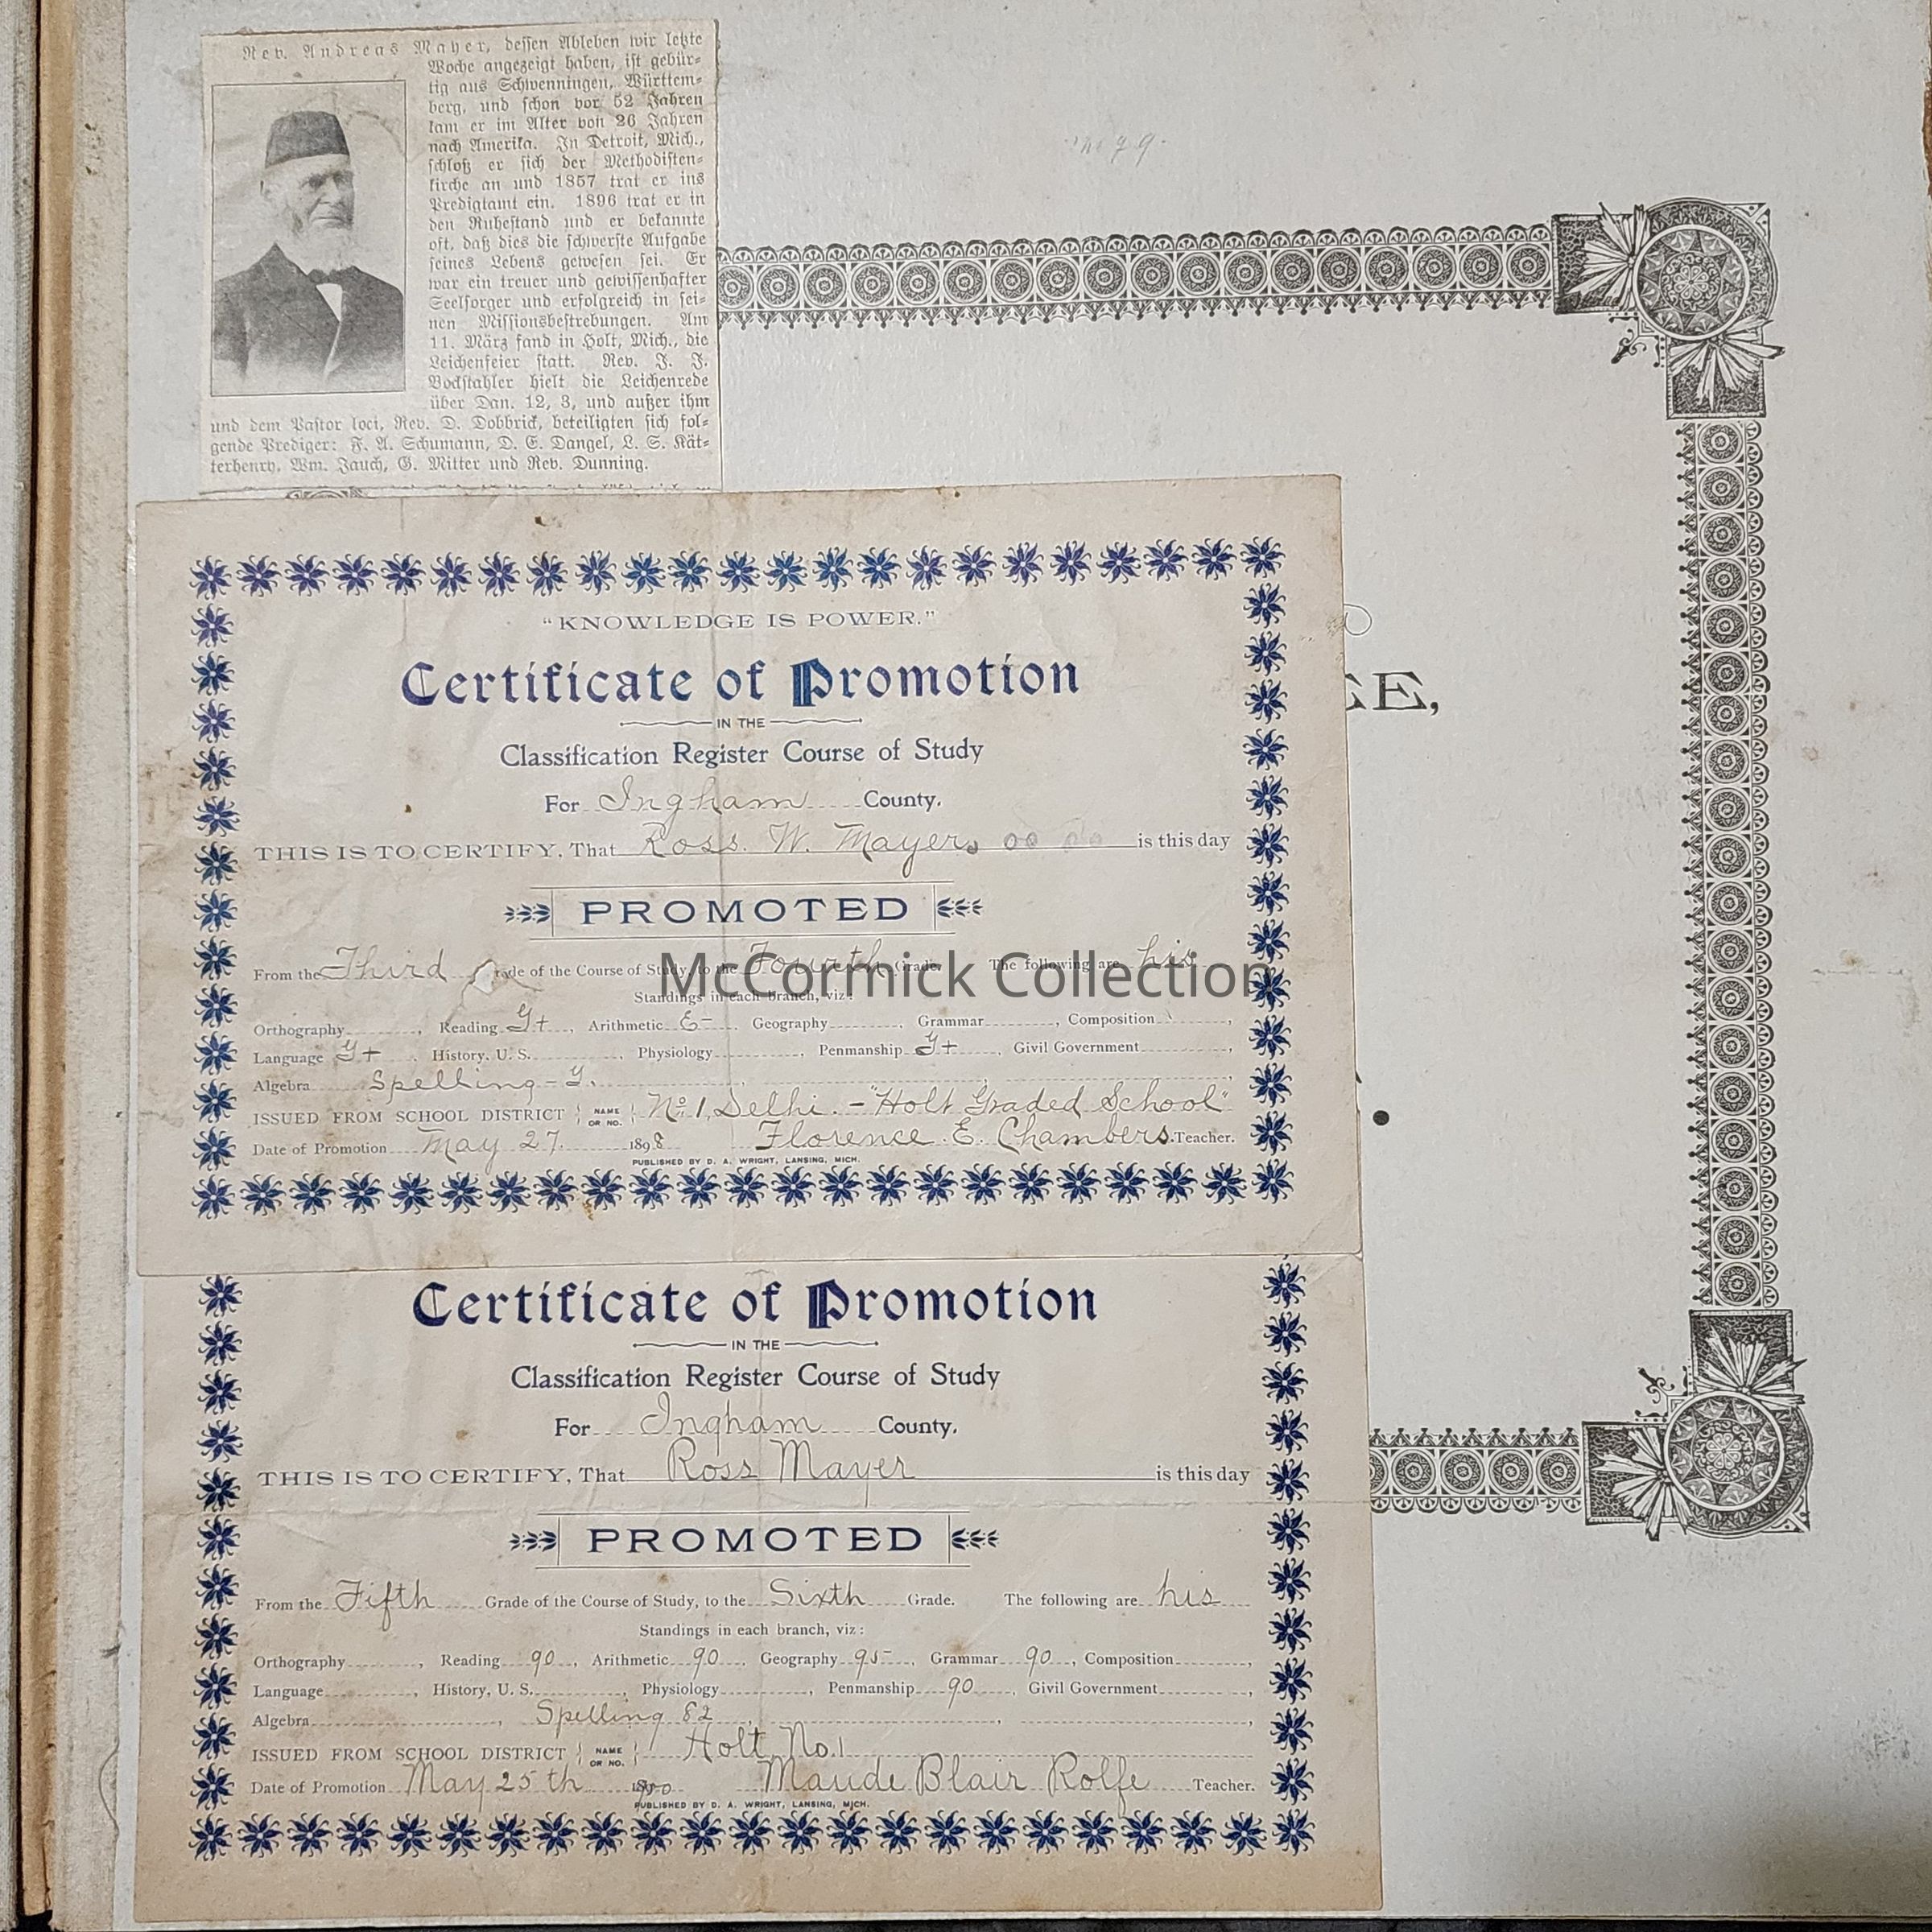 Rev. Andreas Mayer, dessen Ableben wir letzte
Woche angezeigt haben, ist gebür-
tig aus Schwenningen, Württem-
berg, und schon vor 52 Jahren
kam er im Alter von 26 Jahren
nach Amerika. In Detroit, Mich.,
schloß er sich der Methodisten-
kirche an und 1857 trat er ins
Predigtamt ein. 1896 trat er in
den Ruhestand und er bekannte
oft, daß dies die schwerste Aufgabe
seines Lebens gewesen sei. Er
war ein treuer und gewissenhafter
Seelsorger und erfolgreich in sei-
nen Missionsbestrebungen. Am
11. März fand in Holt, Mich., die
Leichenfeier statt. Rev. J. J.
Bockstahler hielt die Leichenrede
über Dan. 12, 3, und außer ihm
und dem Pastor loci, Rev. D. Dobbrick, beteiligten sich fol-
gende Prediger: F. A. Schumann, D. E. Dangel, L. S. Kät-
terhenry, Wm. Jauch, G. Mitter und Rev. Dunning.
GE,
"KNOWLEDGE IS POWER."
Certificate of Promotion
IN THE
Classification Register Course of Study
For Ingham County.
THIS IS TO CERTIFY, That Ross. W. Mayer. is this day
PROMOTED
From the Third Grade of the Course of Study, to the Fourth Grade. The following are his
Standings in each branch, viz:
Orthography, Reading G+, Arithmetic E-, Geography, Grammar, Composition,
Language G+, History, U. S., Physiology, Penmanship G+, Civil Government,
Algebra Spelling - G.
ISSUED FROM SCHOOL DISTRICT { NAME OR NO. } No 1, Delhi. - "Holt Graded School"
Date of Promotion May 27. 1898 Florence E. Chambers. Teacher.
PUBLISHED BY D. A. WRIGHT, LANSING, MICH.
McCormick Collection
Certificate of Promotion
IN THE
Classification Register Course of Study
For Ingham County.
THIS IS TO CERTIFY, That Ross Mayer is this day
PROMOTED
From the Fifth Grade of the Course of Study, to the Sixth Grade. The following are his
Standings in each branch, viz:
Orthography, Reading 90, Arithmetic 90, Geography 95, Grammar 90, Composition,
Language, History, U. S., Physiology, Penmanship 90, Civil Government,
Algebra, Spelling 82,
ISSUED FROM SCHOOL DISTRICT { NAME OR NO. } Holt No. 1
Date of Promotion May 25th 1900 Maude Blair Rolfe Teacher.
PUBLISHED BY D. A. WRIGHT, LANSING, MICH.